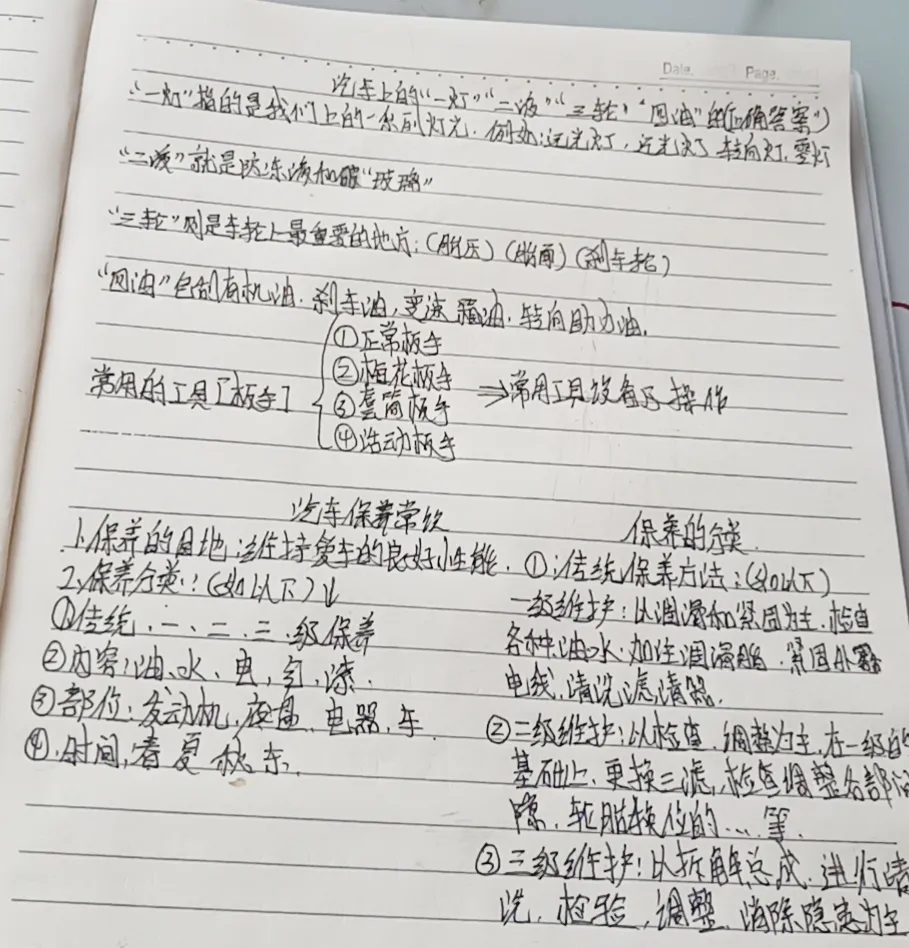 Date. Page.
汽车上的"一灯""二液""三轮""四油"的(正确答案)
"一灯"指的是我们上的一系列灯光.例如:远光灯,近光灯 转向灯.雾灯
"二液"就是防冻液和破"玻璃"
"三轮"则是车轮上最重要的地方:(胎压)(胎面)(刹车轮)
"四油"包刮有机油.刹车油,变速箱油.转向助力油.
①正常板手
②梅花板手
常用的工具[板手] ③套筒板手 ⇒常用工具设备了操作
④活动板手
汽车保养常饮
1.保养的目地:维持爱车的良好性能.
2.保养分类:(如以下)↓
①传统.一、二、三.级保养
②内容:油、水、电,气.漆.
③部位:发动机.底盘.电器.车
④.时间,春夏秋冬.
保养的分类.
①:传统保养方法:(如以下)
一级维护:以润滑和紧固为主.检查
各种油水.加注润滑脂.紧固外露
电线,清洗滤清器.
②二级维护:以检查.调整为主.在一级的
基础上.更换三滤,检查调整各部间
隙.轮胎换位的....等.
③三级维护:以拆解总成.进行清
洗.检验.调整.消除隐患为主